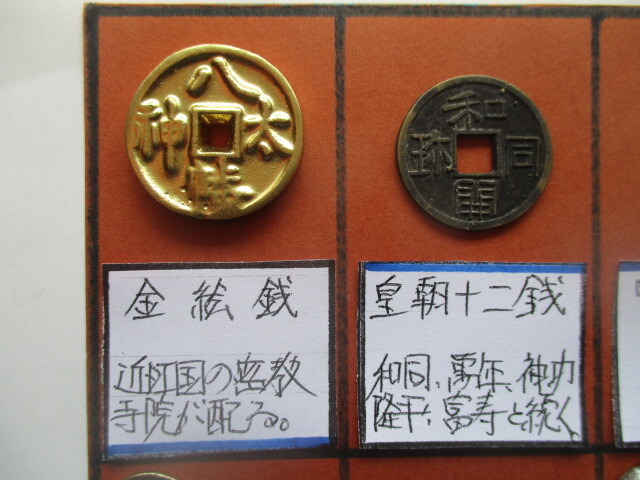 八太神
和同開珎
金絵銭
近江国の密教
寺院が配る。
皇朝十二銭
和同、萬年、神功
隆平、富寿と続く。